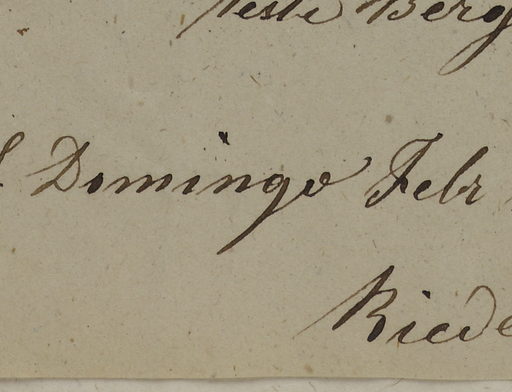 teste Berg
Domingo Febr
Riede